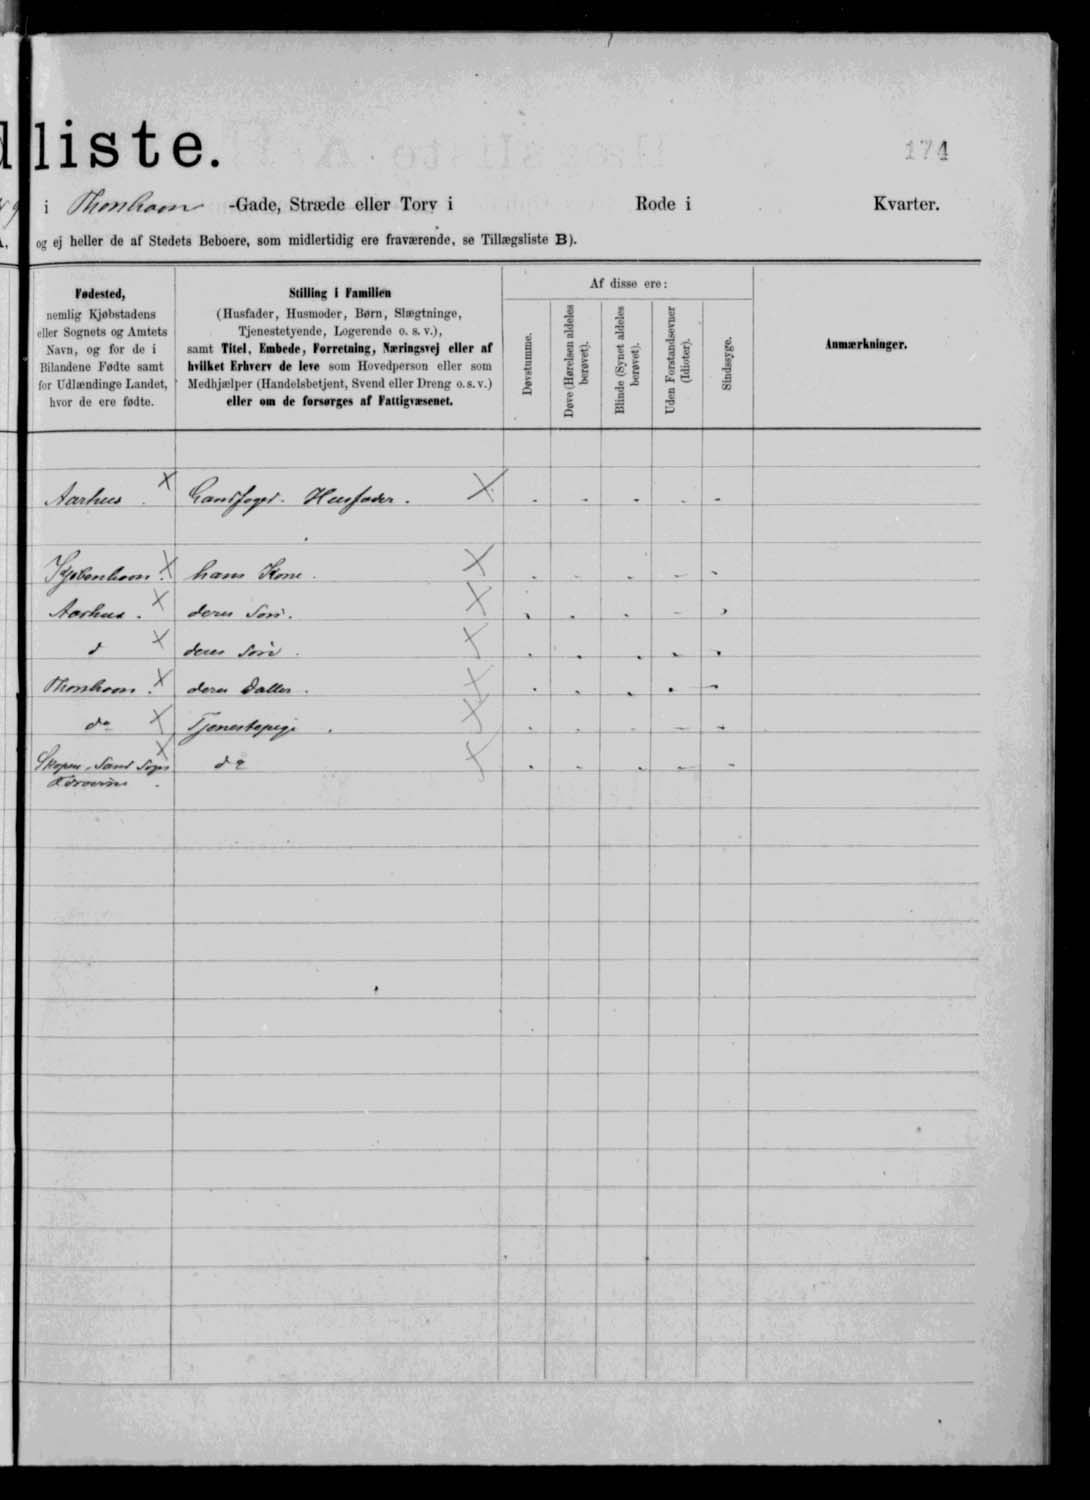 liste.
174
i Thorshavn -Gade, Stræde eller Torv i Rode i Kvarter.
og ej heller de af Stedets Beboere, som midlertidig ere fraværende, se Tillægsliste B).
Fødested,
nemlig Kjøbstadens
eller Sognets og Amtets
Navn, og for de i
Bilandene Fødte samt
for Udlændinge Landet,
hvor de ere fødte.
Stilling i Familien
(Husfader, Husmoder, Børn, Slægtninge,
Tjenestetyende, Logerende o. s. v.),
samt Titel, Embede, Forretning, Næringsvej eller af
hvilket Erhverv de leve som Hovedperson eller som
Medhjælper (Handelsbetjent, Svend eller Dreng o.s.v.)
eller om de forsørges af Fattigvæsenet.
Af disse ere:
Døvstumme.
Døve (Hørelsen aldeles
berøvet).
Blinde (Synet aldeles
berøvet).
Uden Forstandsevner
(Idioter).
Sindssyge.
Anmærkninger.
Aarhus . X Landfoged. Husfader . X - - - - -
Kjøbenhavn . X hans Kone . X - - - - -
Aarhus . X deres Søn . X - - - - -
d X deres Søn . X - - - - -
Thorshavn . X deres Datter . X - - - - -
do X Tjenestepige . X - - - - -
Skopen, Sand Sogn X do X - - - - -
Færøerne .